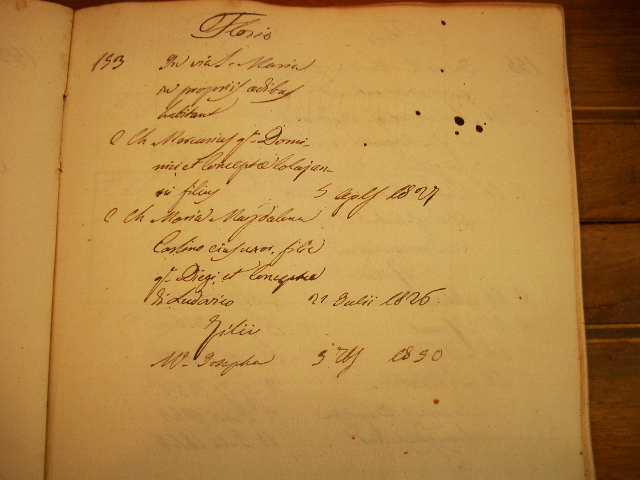 Florio
153 In via S. Maria
in propriis ædibus
habitant
C Ch Mercurius qm. Domi-
nici et Conceptæ Colajan-
ni filius 5 Aplis 1827
C Ch Maria Magdalena
Carlino ejus uxor, filia
qm. Diegi, et Conceptæ
di Ludovico 21 Julii 1826
Filii
Ma. Josepha 1850